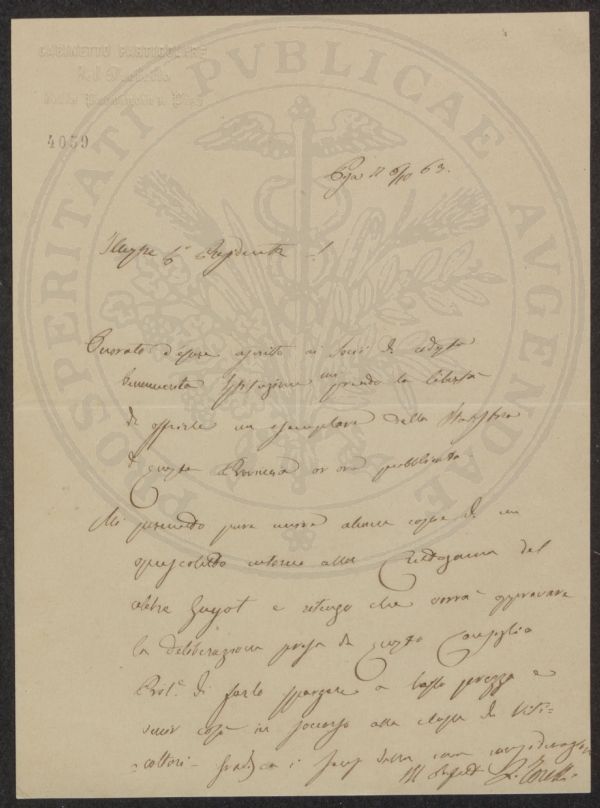 GABINETTO PARTICOLARE
del Prefetto
della Provincia di Pisa
4059
PROSPERITATI PVBLICAE AVGENDAE
Pisa 11 63.
Presidente
Onorato d'essere ascritto ai Soci di codesta
Istituzione mi prendo la libertà
di offrirle un esemplare della Statistica
di questa Provincia or ora pubblicata.
Mi permetto pure unire alcune copie di un
opuscoletto intorno alla Crittogama del
celebre Guyot e ritengo che vorrà approvare
la deliberazione presa da questo Consiglio
di farlo spargere a basso prezzo e
in soccorso alla classe di Viti-
cultori. i sensi della mia
Il Prefetto L. Torelli